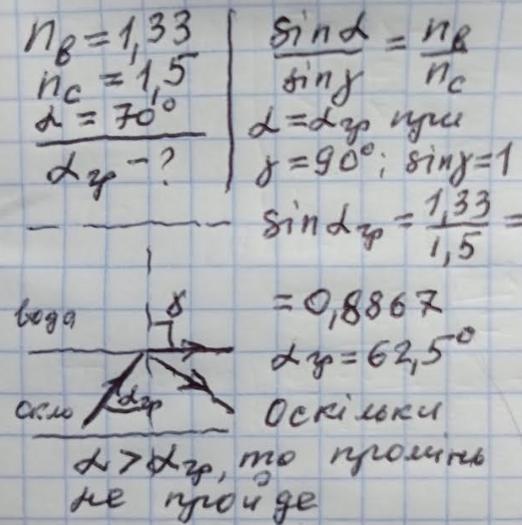 nв = 1,33
nс = 1,5
α = 70°
αгр - ?
sinα / sinγ = nв / nс
α = αгр при
γ = 90°; sinγ = 1
sinαгр = 1,33 / 1,5 =
= 0,8867
αгр = 62,5°
вода
γ
скло
αгр
Оскільки
α > αгр, то промінь
не пройде